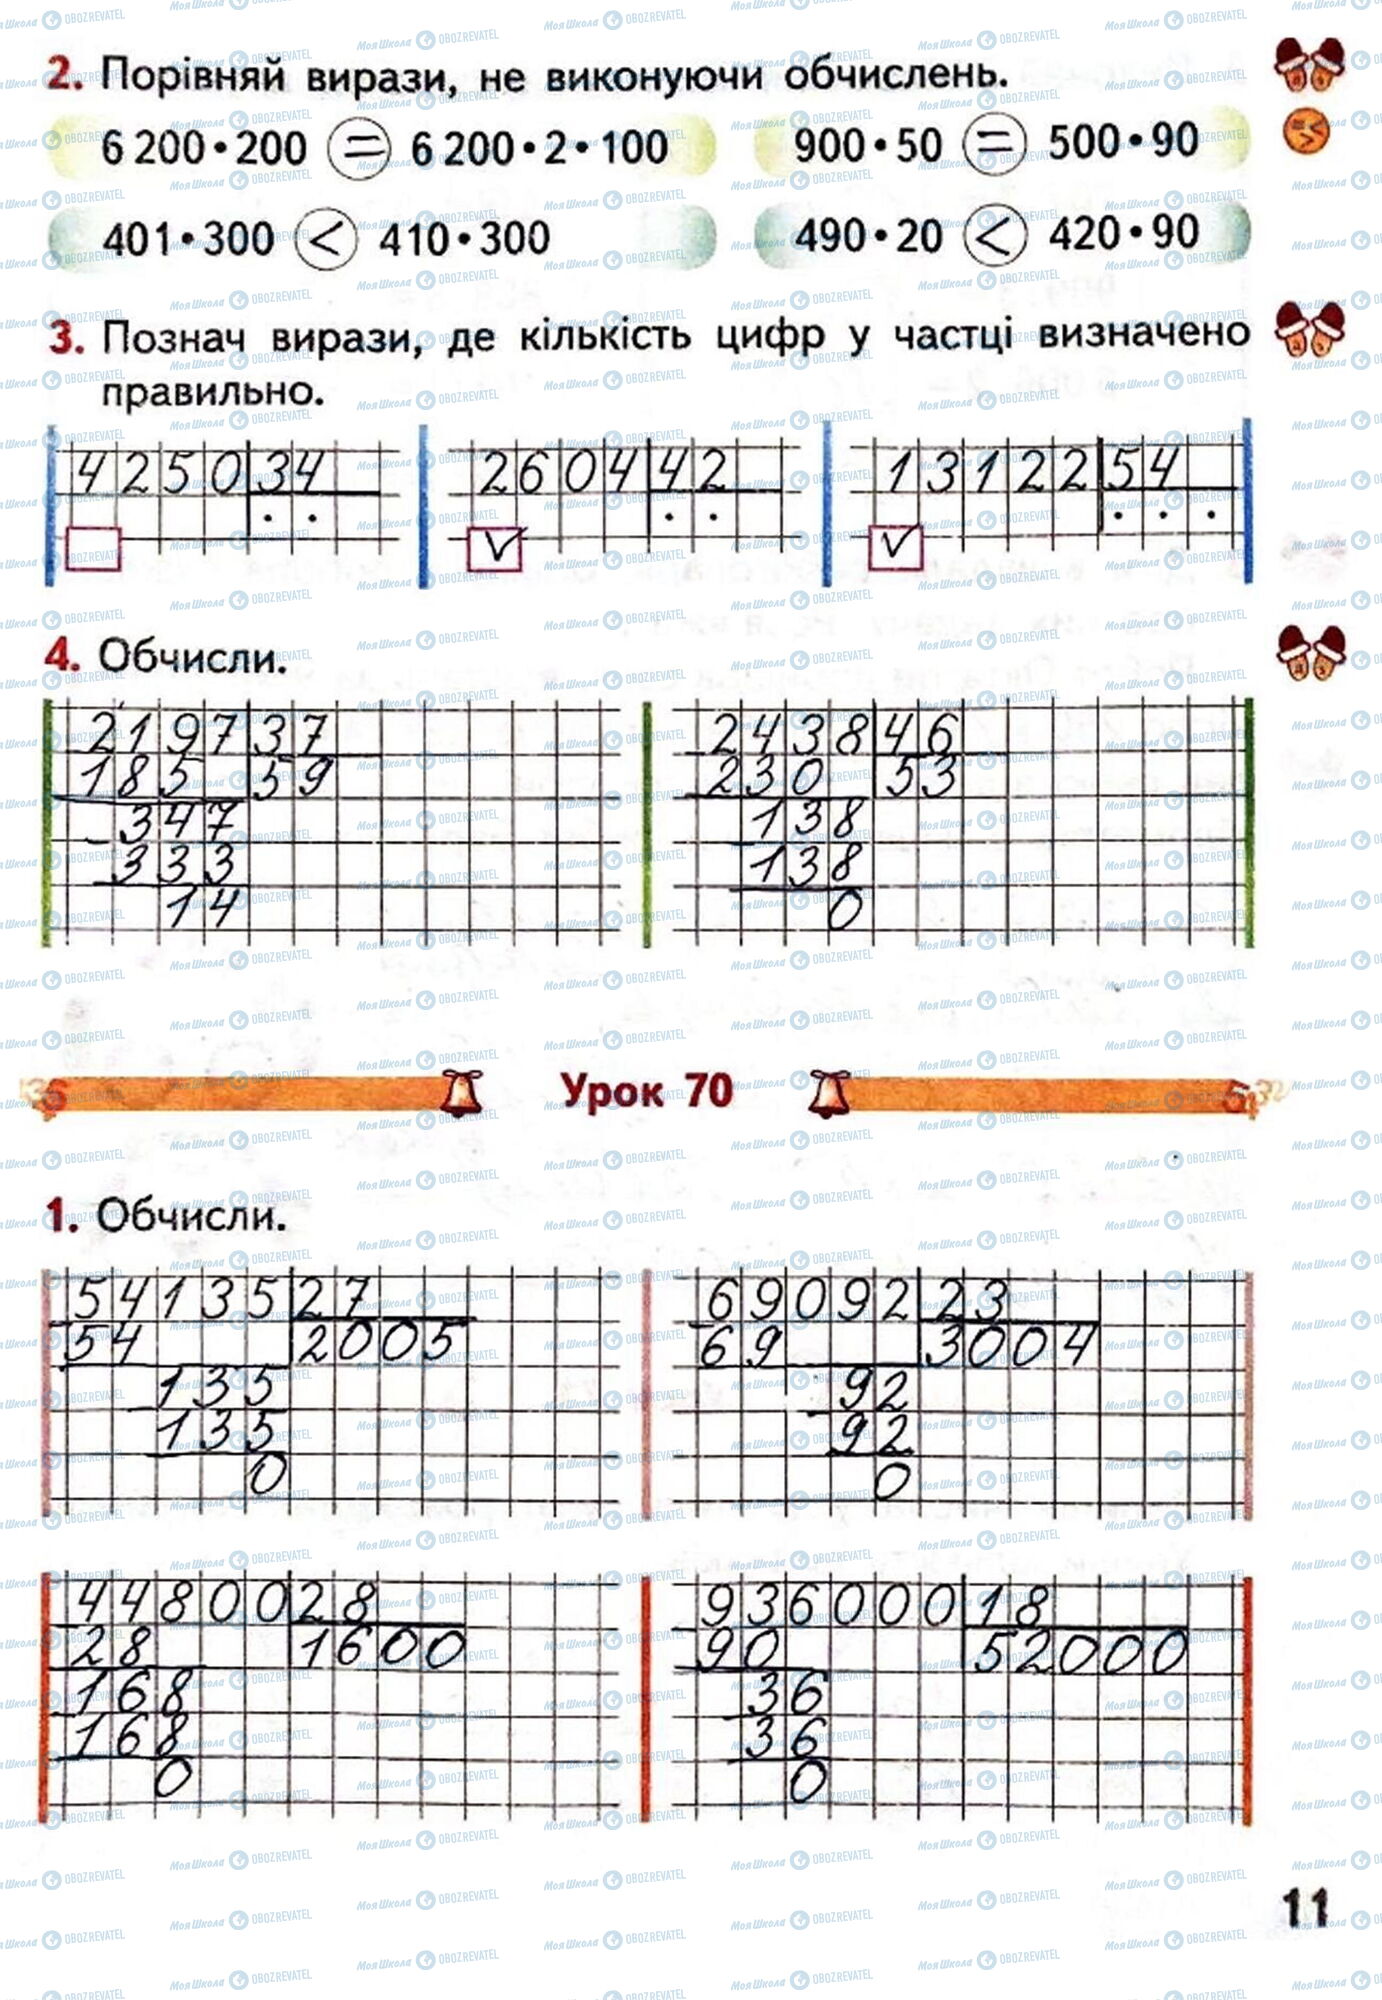 2. Порівняй вирази, не виконуючи обчислень.
6 200 • 200 = 6 200 • 2 • 100
900 • 50 = 500 • 90
401 • 300 < 410 • 300
490 • 20 < 420 • 90
3. Познач вирази, де кількість цифр у частці визначено
правильно.
4250 34
2604 42
13122 54
4. Обчисли.
2197 37
185 59
347
333
14
2438 46
230 53
138
138
0
Урок 70
1. Обчисли.
54135 27
54 2005
135
135
0
69092 23
69 3004
92
92
0
44800 28
28 1600
168
168
0
936000 18
90 52000
36
36
0
11
МояШкола OBOZREVATEL